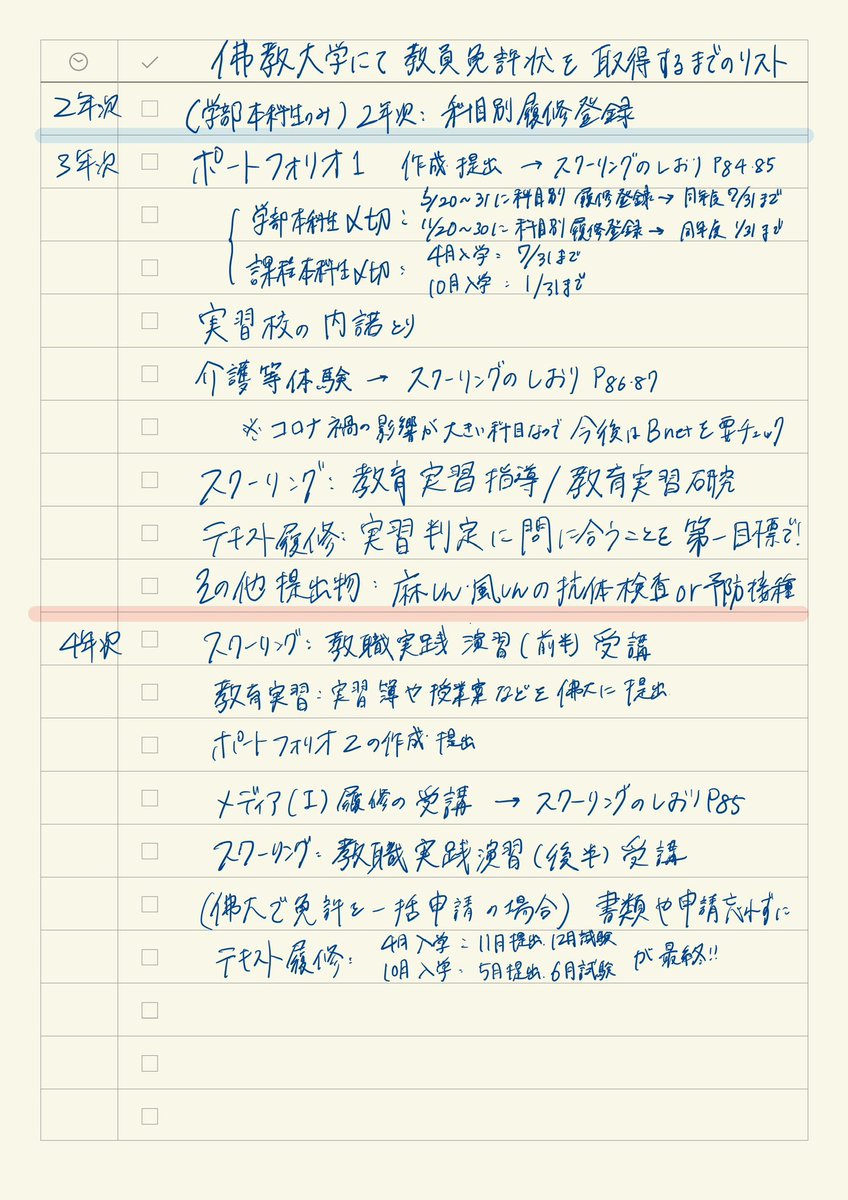 佛教大学にて教員免許状を取得するまでのリスト
2年次 (学部本科生のみ) 2年次: 科目別履修登録
3年次 ポートフォリオ1 作成・提出 → スクーリングのしおりP84.85
学部本科生〆切: 5/20~31に科目別履修登録→ 同年度7/31まで
11/20~30に科目別履修登録→ 同年度1/31まで
課程本科生〆切: 4月入学: 7/31まで
10月入学: 1/31まで
実習校の内諾とり
介護等体験 → スクーリングのしおり P86.87
※コロナ禍の影響が大きい科目なので今後はBnetを要チェック
スクーリング: 教育実習指導/教育実習研究
テキスト履修: 実習判定に間に合うことを第一目標で!
その他提出物: 麻しん・風しんの抗体検査or予防接種
4年次 スクーリング: 教職実践演習(前半)受講
教育実習: 実習簿や授業案などを佛大に提出
ポートフォリオ2の作成・提出
メディア(I)履修の受講 → スクーリングのしおりP85
スクーリング: 教職実践演習(後半)受講
(佛大で免許を一括申請の場合) 書類や申請忘れずに
テキスト履修: 4月入学: 11月提出.12月試験
10月入学: 5月提出.6月試験 が最終!!